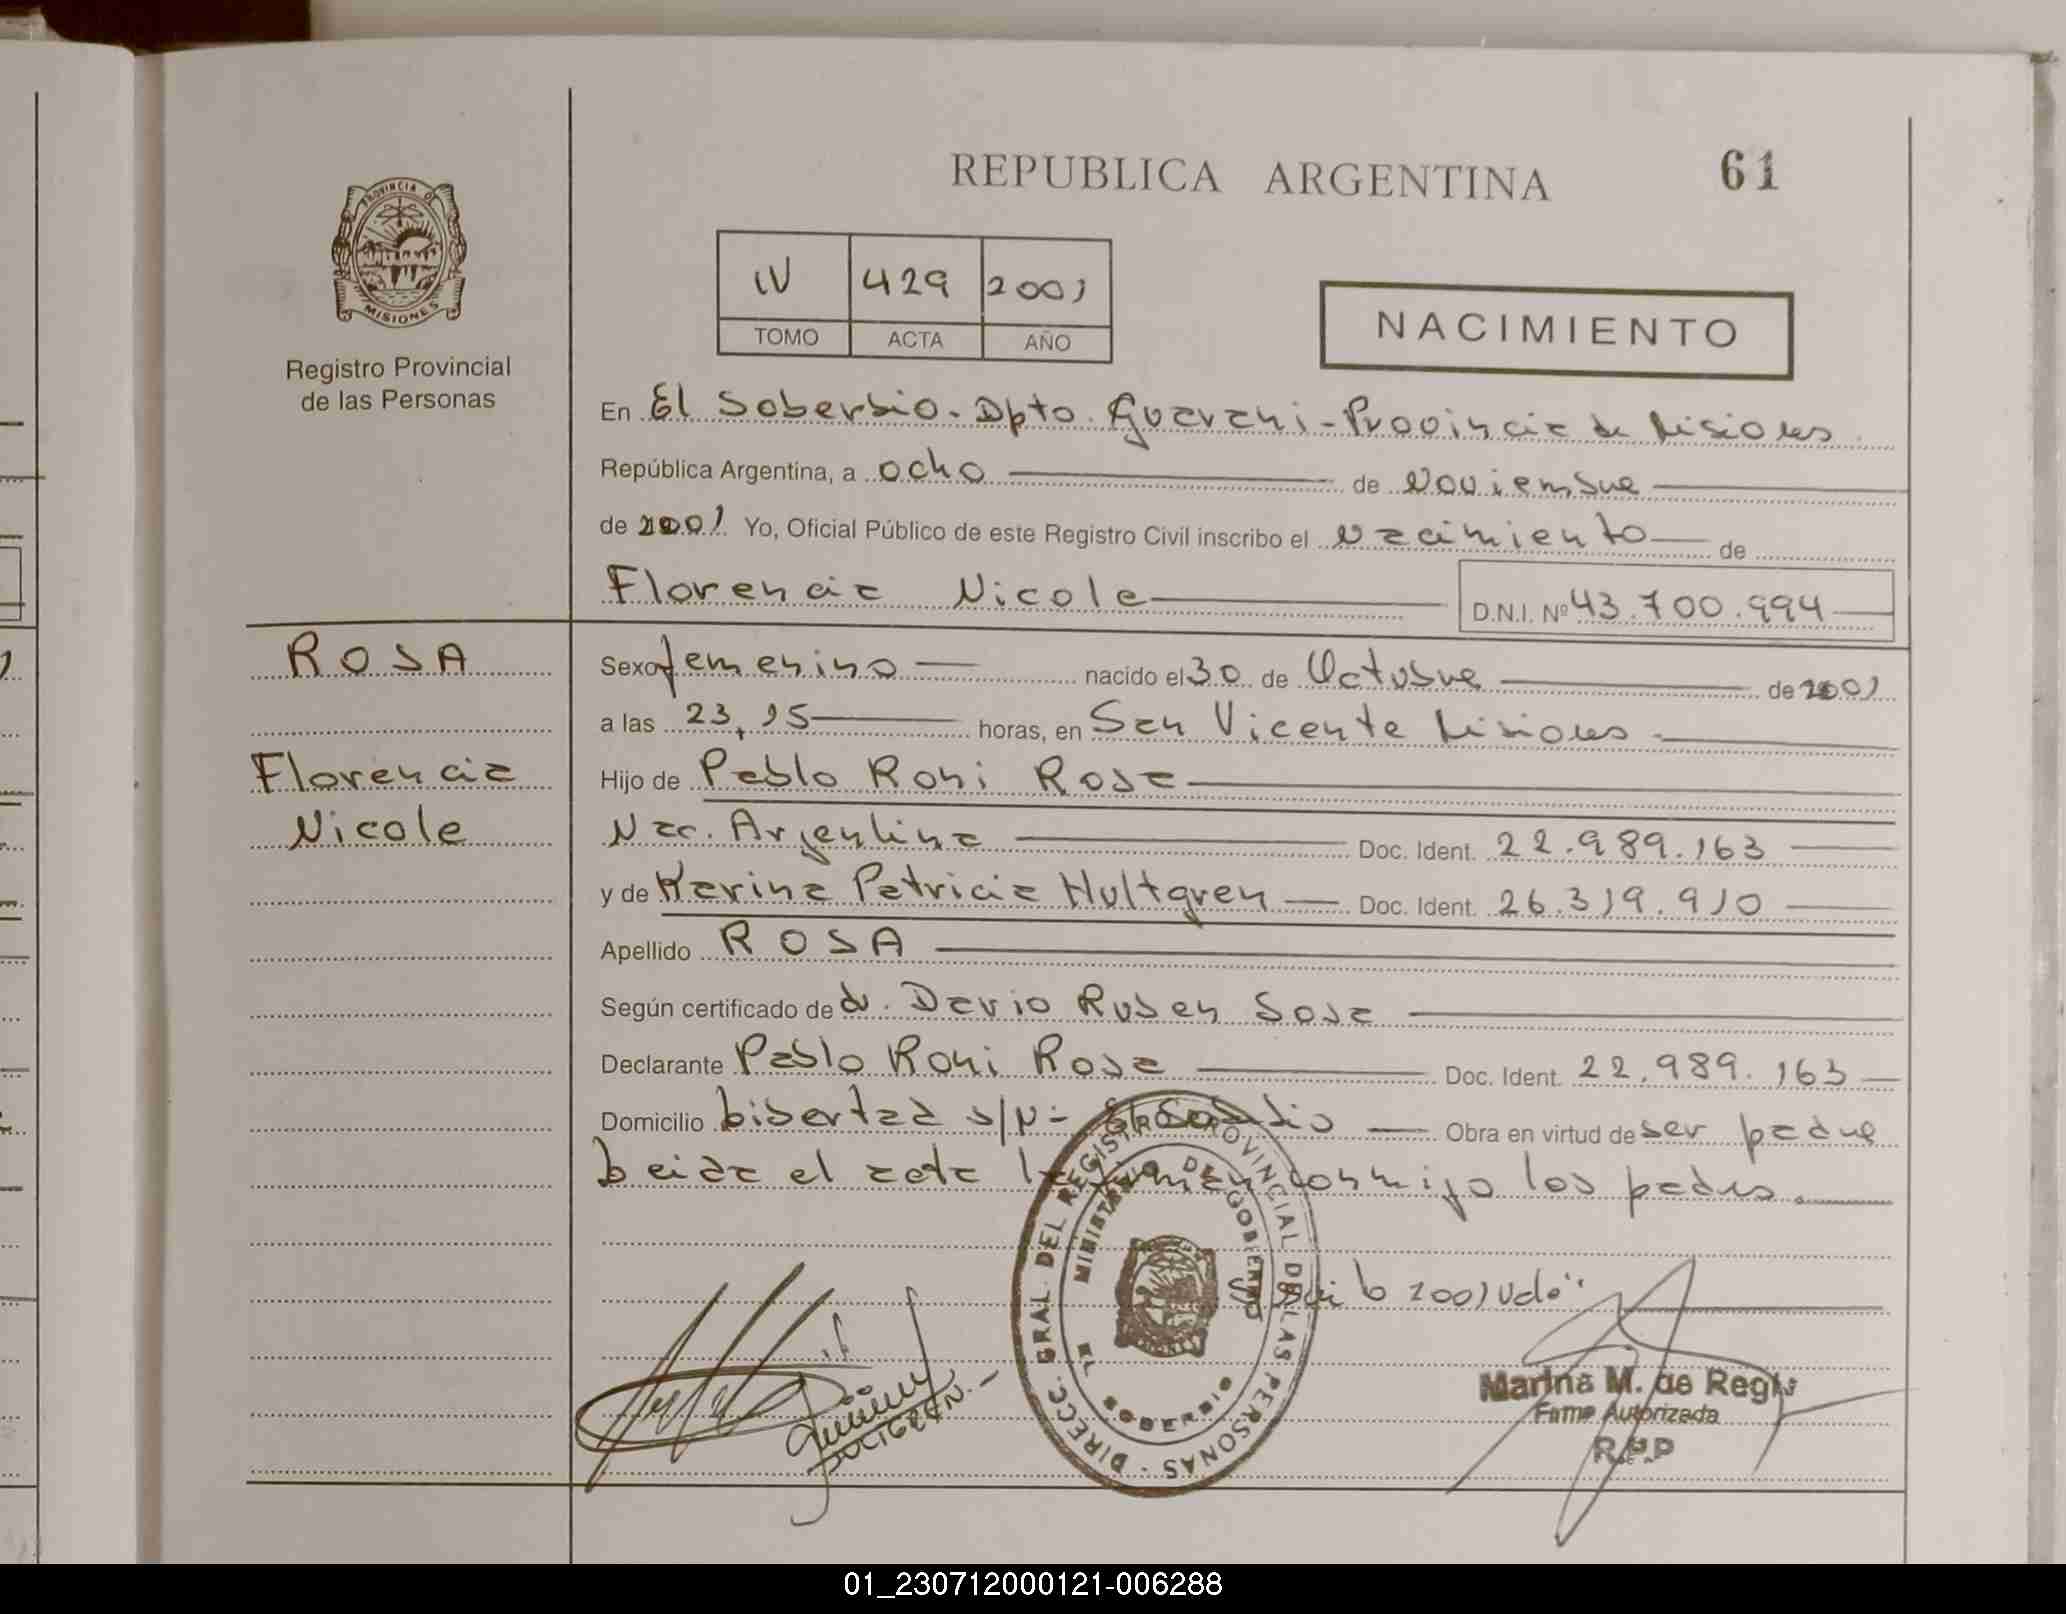 REPUBLICA ARGENTINA
61
PROVINCIA DE
MISIONES
Registro Provincial
de las Personas
IV 429 2001
TOMO ACTA AÑO
NACIMIENTO
En El Soberbio - Dpto. Guarani - Provincia de Misiones
República Argentina, a ocho de Noviembre
de 2001 Yo, Oficial Público de este Registro Civil inscribo el nacimiento de
Florencia Nicole D.N.I. Nº 43.700.994
ROSA
Florencia
Nicole
Sexo femenino nacido el 30 de Octubre de 2001
a las 23,15 horas, en San Vicente Misiones.
Hijo de Pablo Roni Rosa
Nac. Argentina Doc. Ident. 22.989.163
y de Karina Patricia Hultgren Doc. Ident. 26.319.910
Apellido ROSA
Según certificado de dr. Dario Ruben Sosa
Declarante Pablo Roni Rosa Doc. Ident. 22.989.163
Domicilio Libertad s/Nº El Soberbio Obra en virtud de ser padre
Leida el acta la firman conmigo los padres.
2001 vale"
DIRECC. GRAL. DEL REGISTRO PROVINCIAL DE LAS PERSONAS
MINISTERIO DE GOBIERNO
EL SOBERBIO
HULTGREN.
Marina M. de Regis
Firma Autorizada
R.P.P
01_230712000121-006288